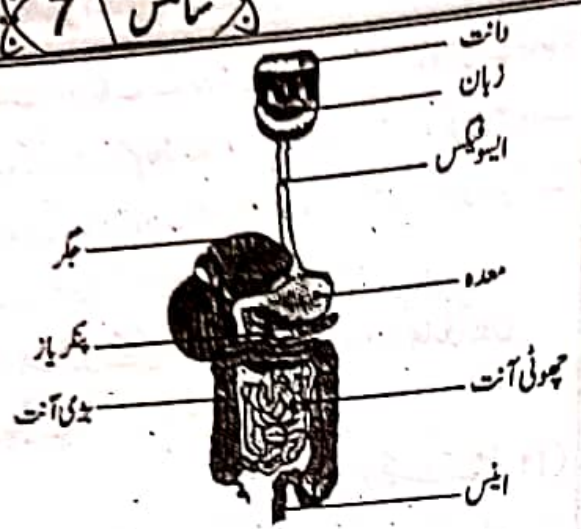 سائنس 7
دانت
زبان
ایسوفیگس
جگر
معدہ
پنکریاز
چھوٹی آنت
بڑی آنت
اینس